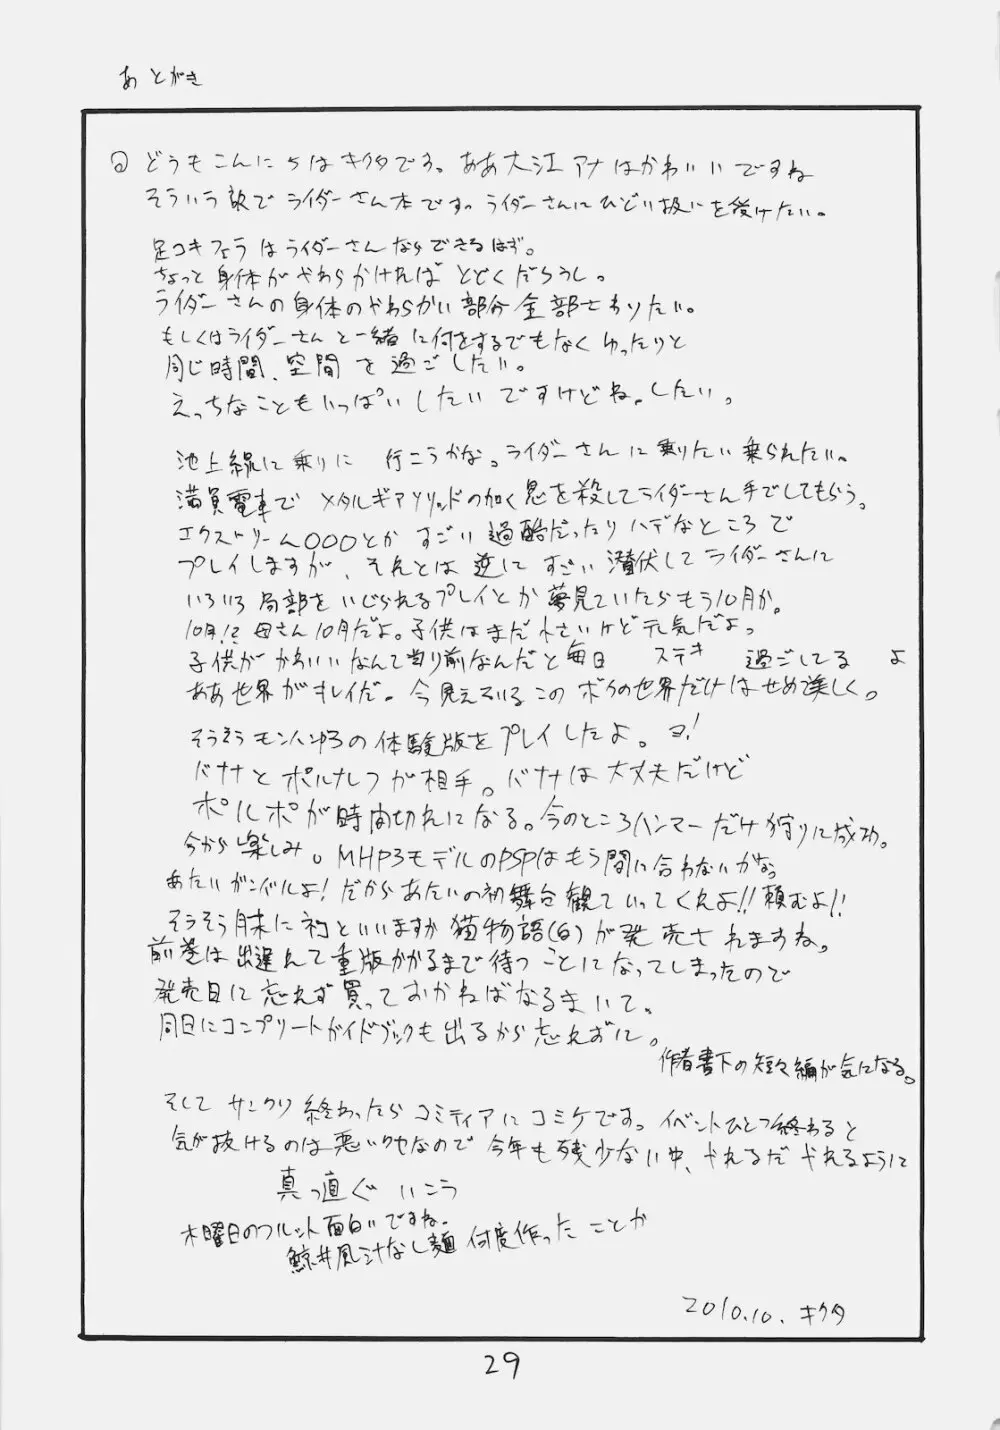 あとがき
どうもこんにちはキクタです。ああ大江アナはかわいいですね
そういう訳でライダーさん本です。ライダーさんにひどい扱いを受けたい。
足コキフェラはライダーさんならできるはず。
ちょっと身体がやわらかければとどくだろうし。
ライダーさんの身体のやわらかい部分全部さわりたい。
もしくはライダーさんと一緒に何をするでもなくゆったりと
同じ時間、空間を過ごしたい。
えっちなこともいっぱいしたいですけどね。したい。
池上線に乗りに 行こうかな。ライダーさんに乗りたい乗られたい。
満員電車でメタルギアソリッドの如く息を殺してライダーさん手でしてもらう。
エクストリーム〇〇〇とかすごい過酷だったりハデなところで
プレイしますが、それとは逆にすごい潜伏してライダーさんに
いろいろ局部をいじられるプレイとか夢見ていたらもう10月か。
10月!? 母さん10月だよ。子供はまだ小さいけど元気だよ。
子供がかわいいなんて当り前なんだと毎日 ステキ 過ごしてる よ
ああ世界がキレイだ。今見えているこのボクの世界だけはせめ美しく。
そうそうモンハンゆろの体験版をプレイしたよ。ヨ!
バナナとポルナレフが相手。バナナは大丈夫だけど
ポルポが時間切れになる。今のところハンマーだけ狩りに成功。
今から楽しみ。MHP3モデルのPSPはもう間に合わないかな。
あたいガンバルよ!だからあたいの初舞台観ていってくれよ!!頼むよ!!
そうそう月末にネコといいますか猫物語(白)が発売されますね。
前巻は出遅れて重版かかるまで待つことになってしまったので
発売日に忘れず買っておかねばなるまいて。
同日にコンプリートガイドブックも出るから忘れずに。
作者書下の短々編が気になる。
そしてサンクリ終わったらコミティアにコミケです。イベントひとつ終わると
気が抜けるのは悪いクセなので今年も残少ない中、やれるだやれるように
真っ直ぐいこう
木曜日のフルット面白いですね。
鯨井風汁なし麺何度作ったことか
2010.10. キクタ
29